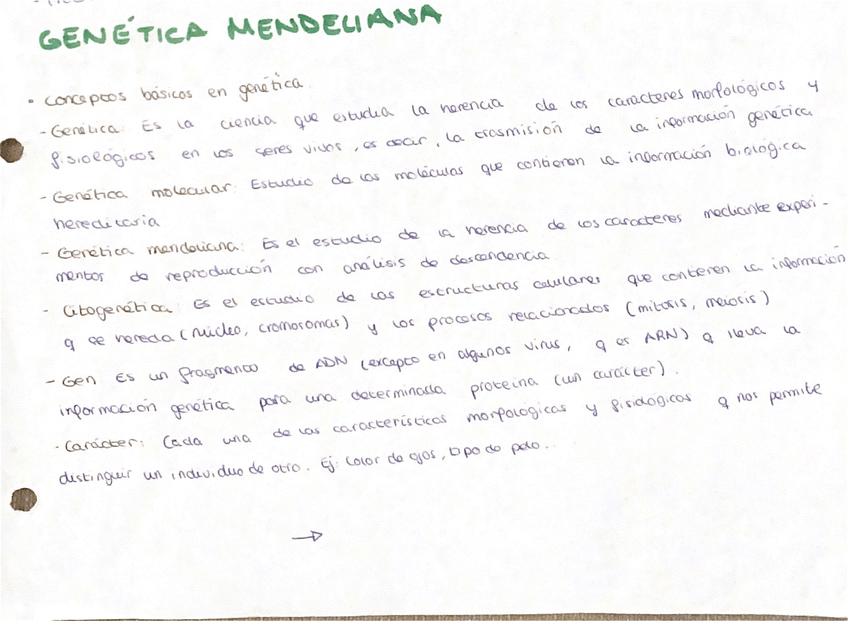 GENÉTICA MENDELIANA
• conceptos básicos en genética.
- Genética: Es la ciencia que estudia la herencia de los carácteres morfológicos y
fisiológicos en los seres vivos, es decir, la trasmisión de la información genética
- Genética molecular: Estudio de las moléculas que contienen la información biológica
hereditaria
- Genética mendeliana: Es el estudio de la herencia de los caracteres mediante experi-
mentos de reproducción con análisis de descendencia.
- Citogenética: Es el estudio de las estructuras celulares que contienen la información
q se hereda (núcleo, cromosomas) y los procesos relacionados (mitosis, meiosis)
- Gen Es un fragmento de ADN (excepto en algunos virus, q es ARN) q lleva la
información genética para una determinada proteína (un carácter).
- Carácter: Cada una de las características morfológicas y fisiológicas q nos permite
distinguir un individuo de otro. Ej: color de ojos, tipo de pelo..
→